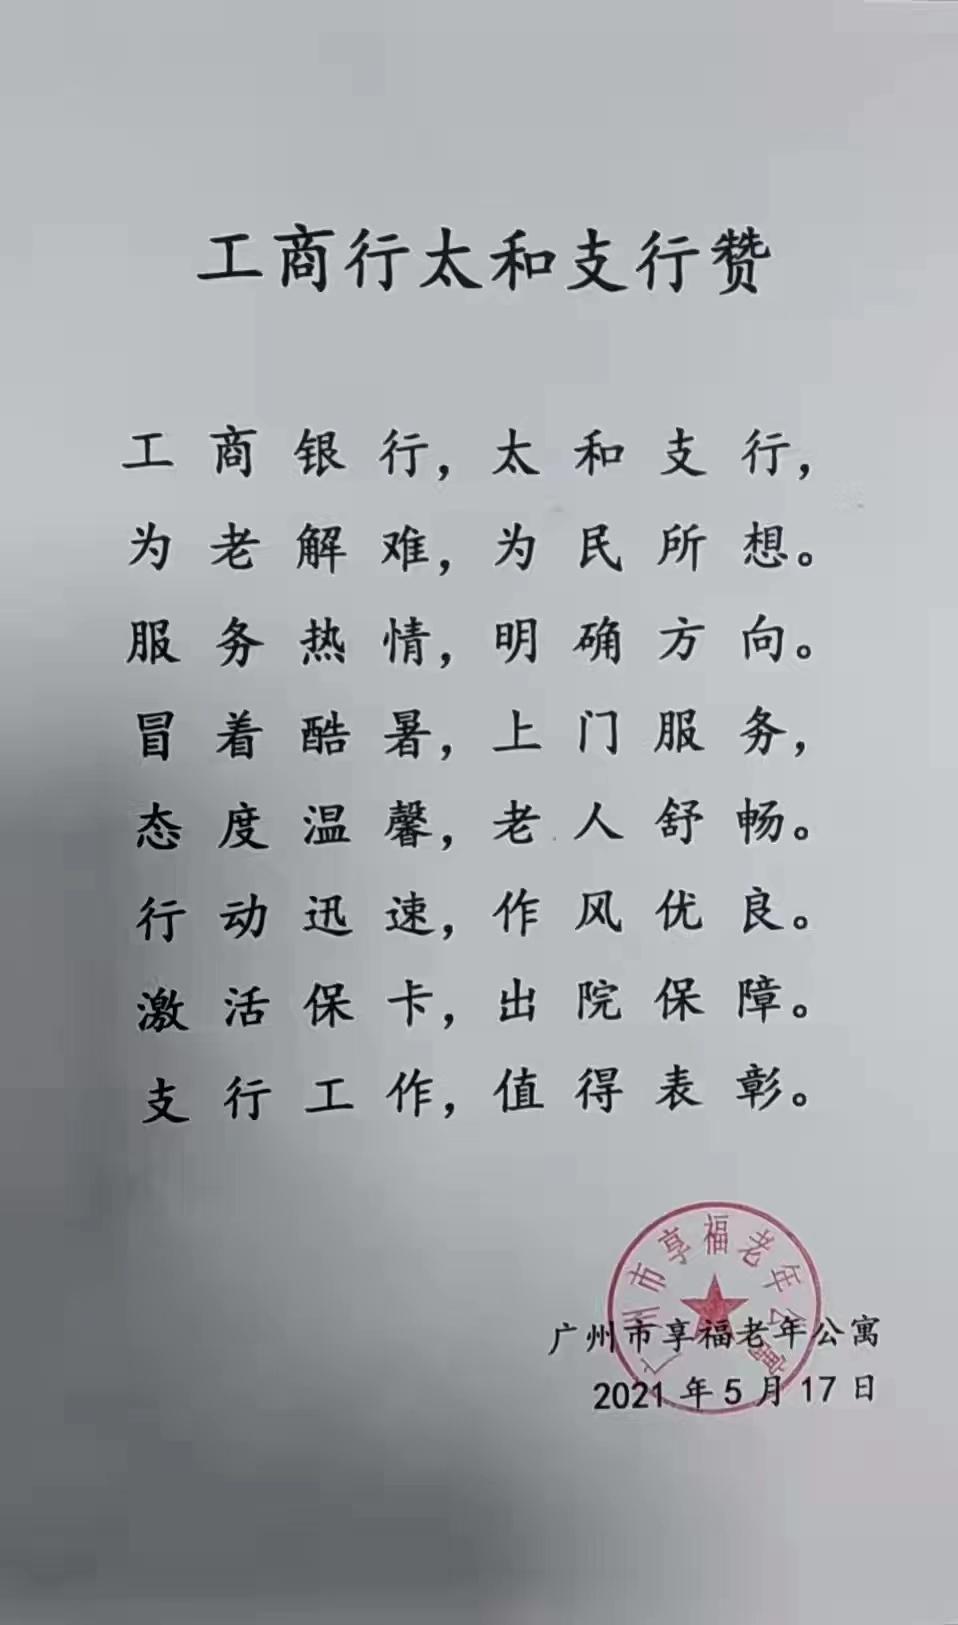 工商行太和支行赞
工商银行，太和支行，
为老解难，为民所想。
服务热情，明确方向。
冒着酷暑，上门服务，
态度温馨，老人舒畅。
行动迅速，作风优良。
激活保卡，出院保障。
支行工作，值得表彰。
广州市享福老年公寓
广州市享福老年公寓
2021年5月17日